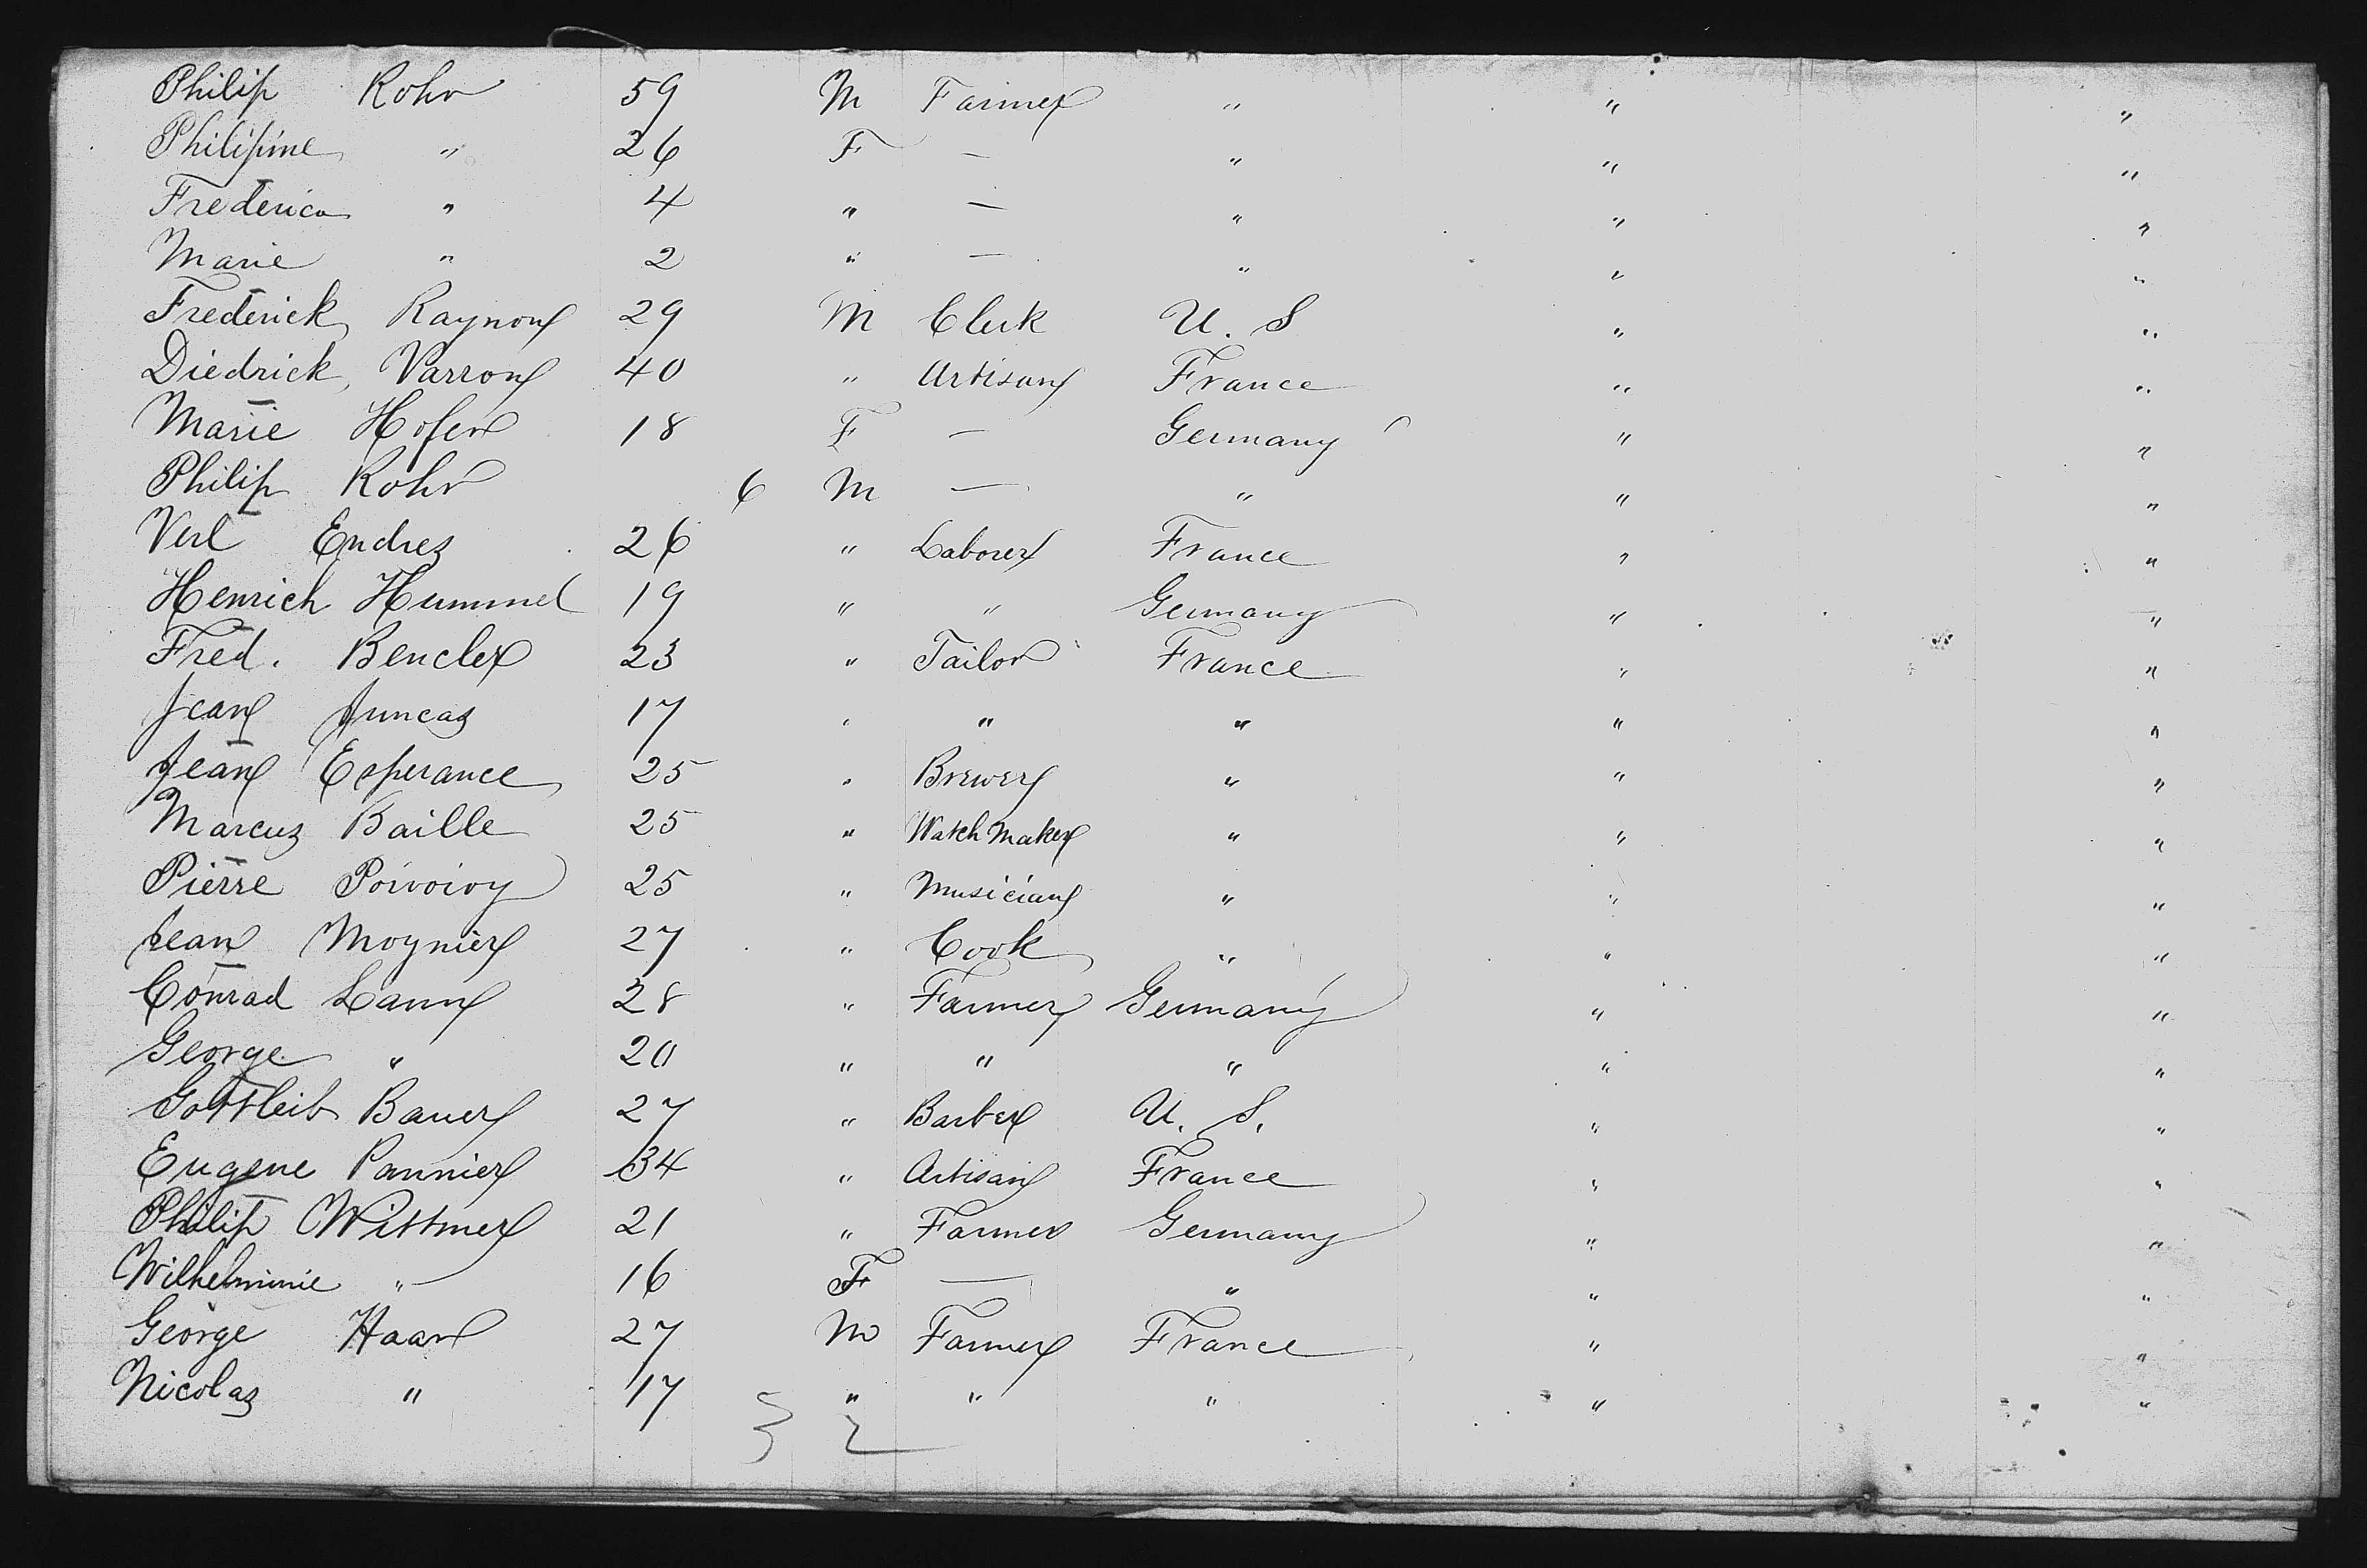 Philip Rohr 59 M Farmer " " "
Philipine " 26 F — " " "
Frederica " 4 " — " " "
Marie " 2 " — " " "
Frederick Raynon 29 M Clerk U. S " "
Diedrick Varron 40 " Artisan France " "
Marie Hofer 18 F — Germany " "
Philip Rohr 6 M — " " "
Endres 26 " Laborer France " "
Henrich Hummel 19 " " Germany " "
Fred. Bencler 23 " Tailor France " "
Jean Juncas 17 " " " " "
Jean Esperance 25 " Brewer " " "
Marcus Baille 25 " Watch Maker " " "
Pierre 25 " Musician " " "
Jean Moynier 27 " Cook " " "
Conrad Lann 28 " Farmer Germany " "
George " 20 " " " " "
Gottleib Bauer 27 " Barber U. S. " "
Eugene Pannier 34 " Artisan France " "
Philip Wittmer 21 " Farmer Germany " "
Wilhelminie " 16 F — " " "
George Haar 27 M Farmer France " "
Nicolas " 17 " " " " "